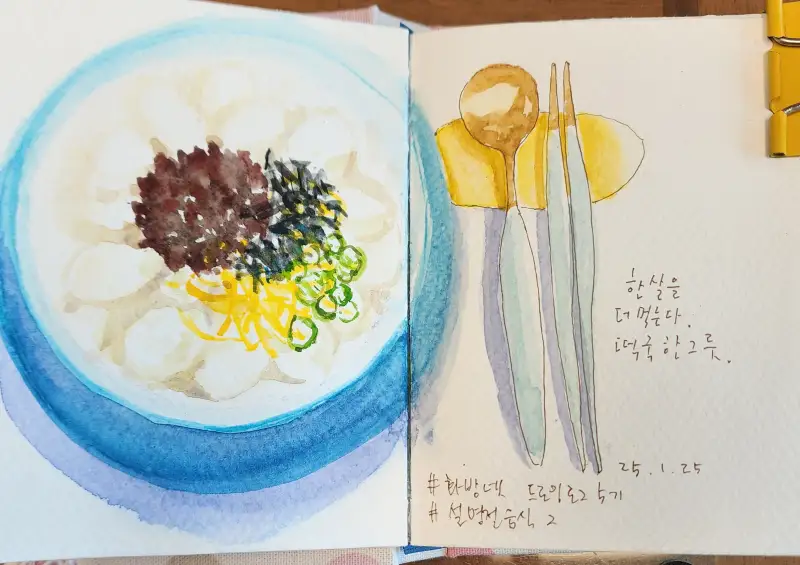 한 살을
더 먹는다.
떡국 한그릇.
25.1.25
#화방넷 드로잉로그 5기
#설명절음식 2